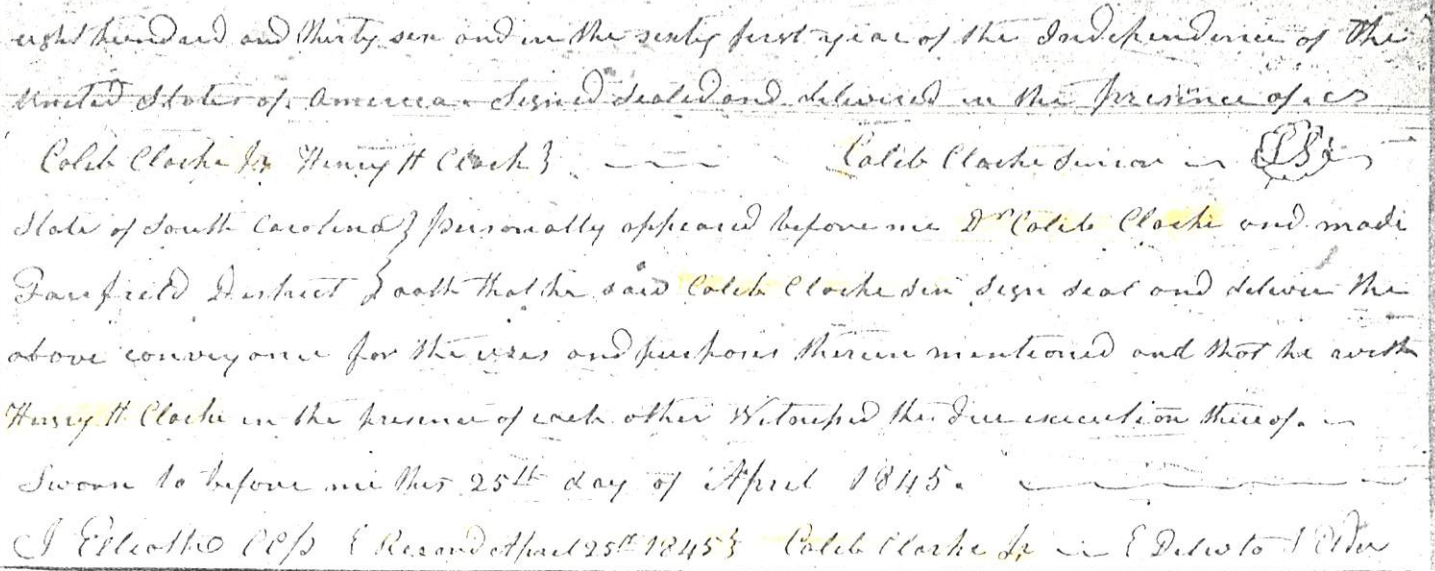 eight hundred and thirty six and in the sixty first year of the Independence of the
United States of America. Signed Sealed and delivered in the presence of.
Caleb Clarke Jr Henry H Clark } Caleb Clarke Senior LS
State of South Carolina } personally appeared before me Dr Caleb Clarke and made
Fairfield District } oath that he saw Caleb Clarke sen sign seal and deliver the
above conveyance for the uses and purposes therein mentioned and that he with
Henry H Clarke in the presence of each other Witnessed the due execution thereof.
Sworn to before me this 25th day of April 1845.
J Elliott CCP { Record April 25th 1845 } Caleb Clarke Jr { Del to J Elder